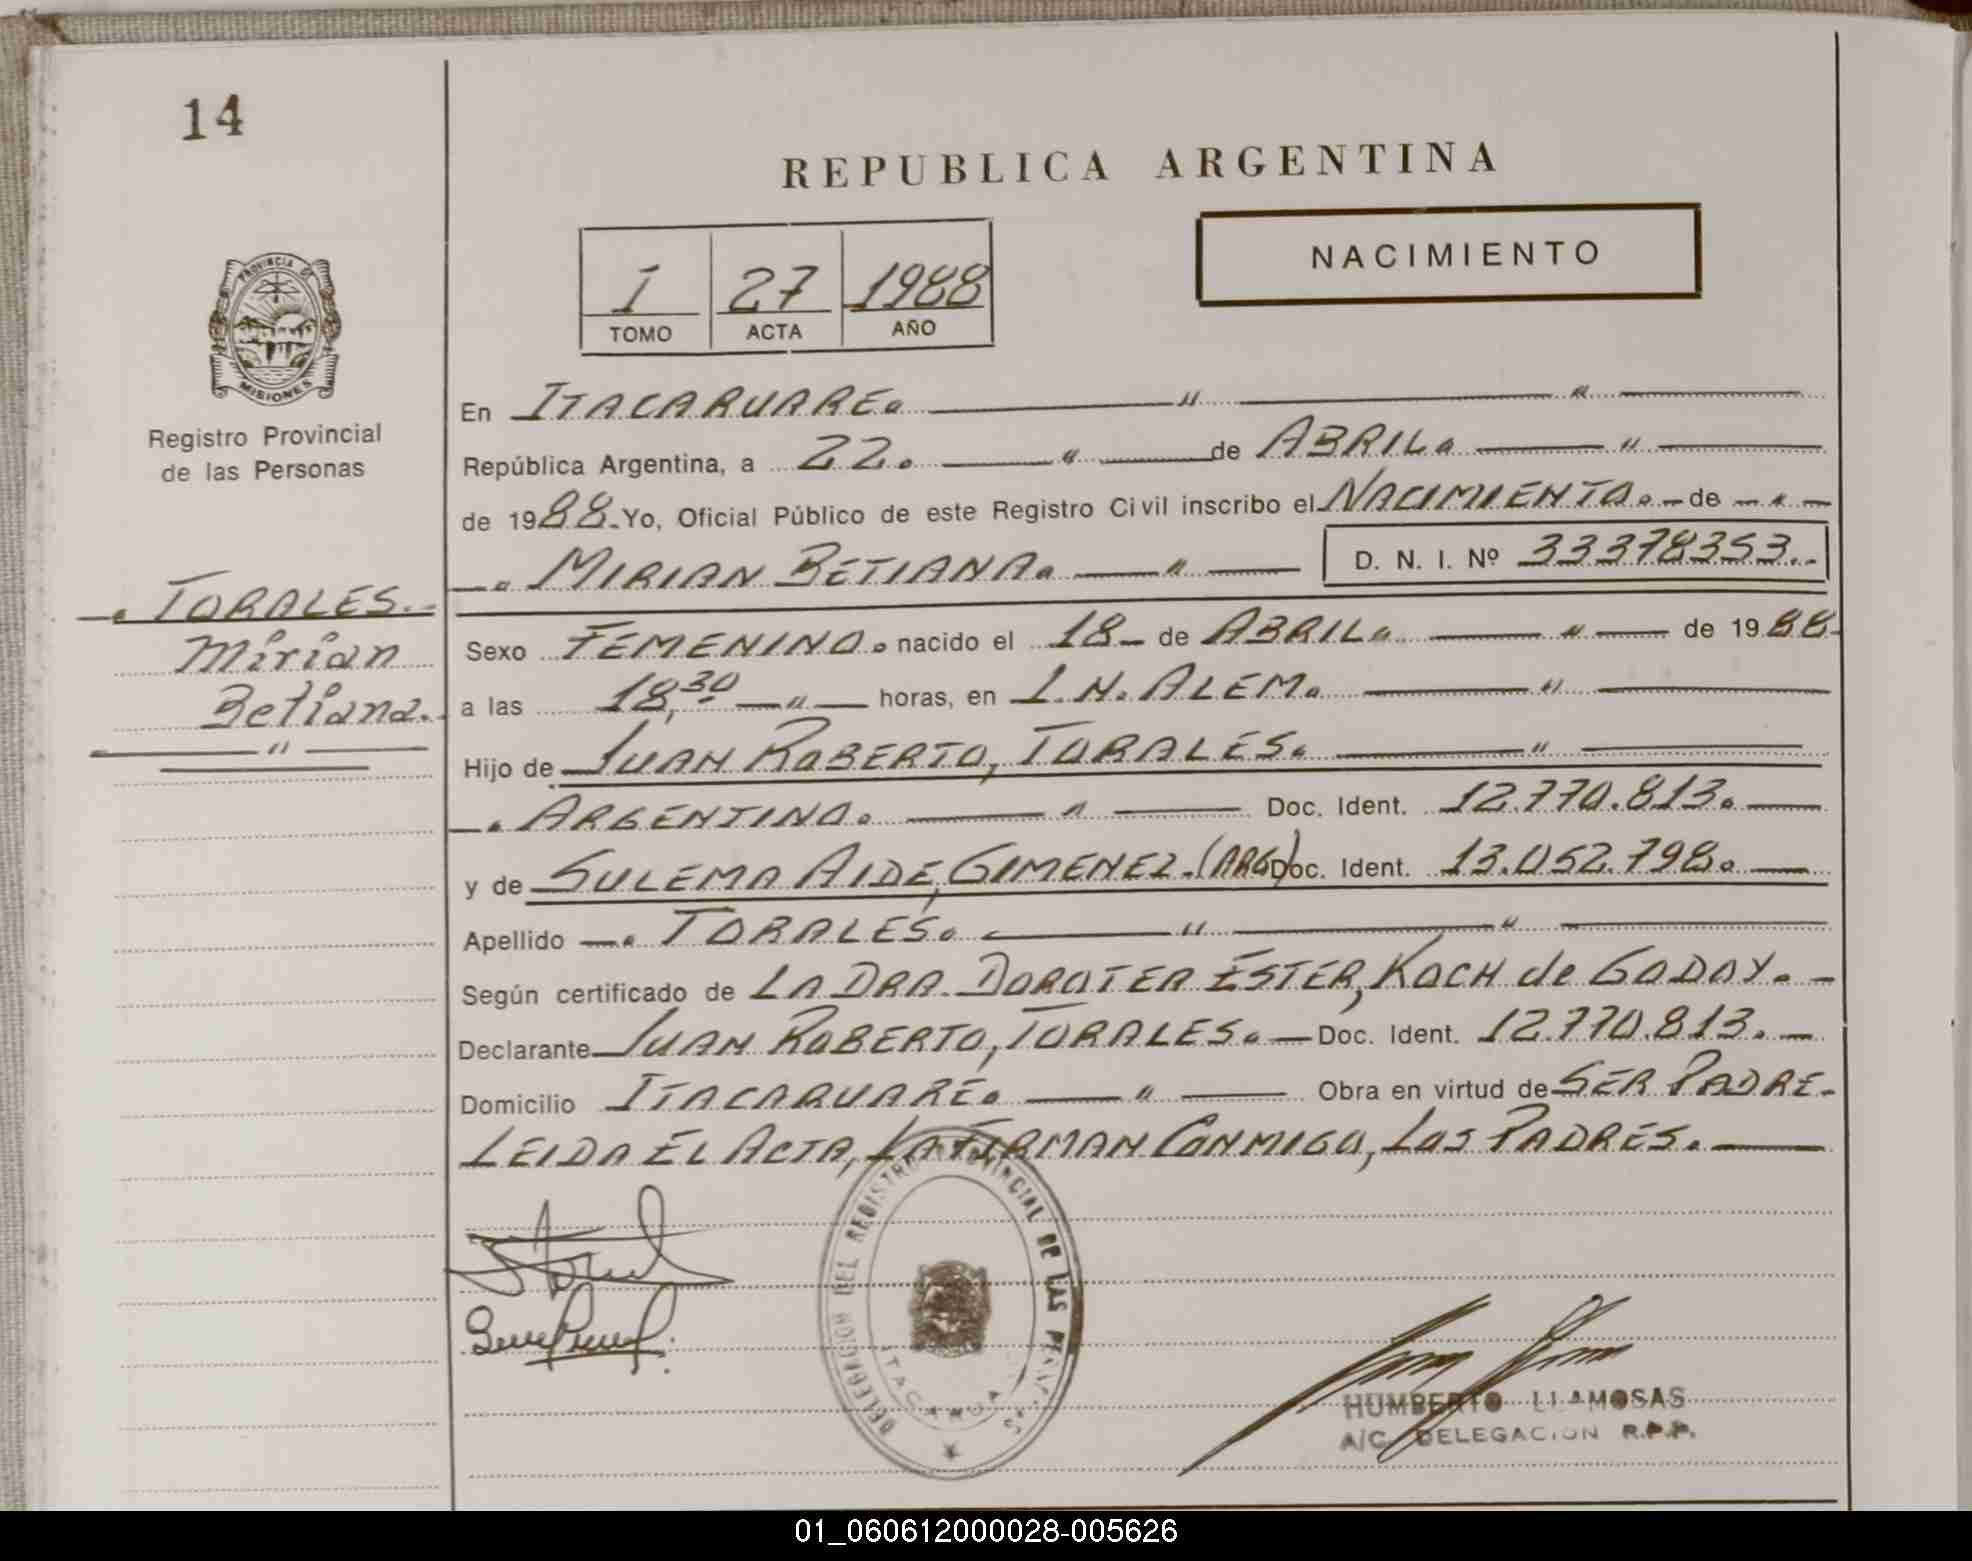 14
REPUBLICA ARGENTINA
NACIMIENTO
I 27 1988
TOMO ACTA AÑO
PROVINCIA DE
MISIONES
Registro Provincial
de las Personas
TORALES.
Mirian
Betiana.
En ITACARUARE.
República Argentina, a 22. de ABRIL.
de 1988. Yo, Oficial Público de este Registro Civil inscribo el NACIMIENTO. de
MIRIAN BETIANA. D. N. I. Nº 33378353.
Sexo FEMENINO. nacido el 18 de ABRIL. de 1988
a las 18,30 horas, en L.N. ALEM.
Hijo de JUAN ROBERTO, TORALES.
ARGENTINO. Doc. Ident. 12.770.813.
y de SULEMA AIDE, GIMENEZ. (ARG) Doc. Ident. 13.052.798.
Apellido TORALES.
Según certificado de LA DRA. DOROTEA ESTER, KOCH de GODOY.
Declarante JUAN ROBERTO, TORALES. Doc. Ident. 12.770.813.
Domicilio ITACARUARE. Obra en virtud de SER PADRE.
LEIDA EL ACTA, LA FIRMAN CONMIGO, LOS PADRES.
DELEGACION DEL REGISTRO PROVINCIAL DE LAS
HUMBERTO LLAMOSAS
A/C. DELEGACION R.P.P.
01_060612000028-005626